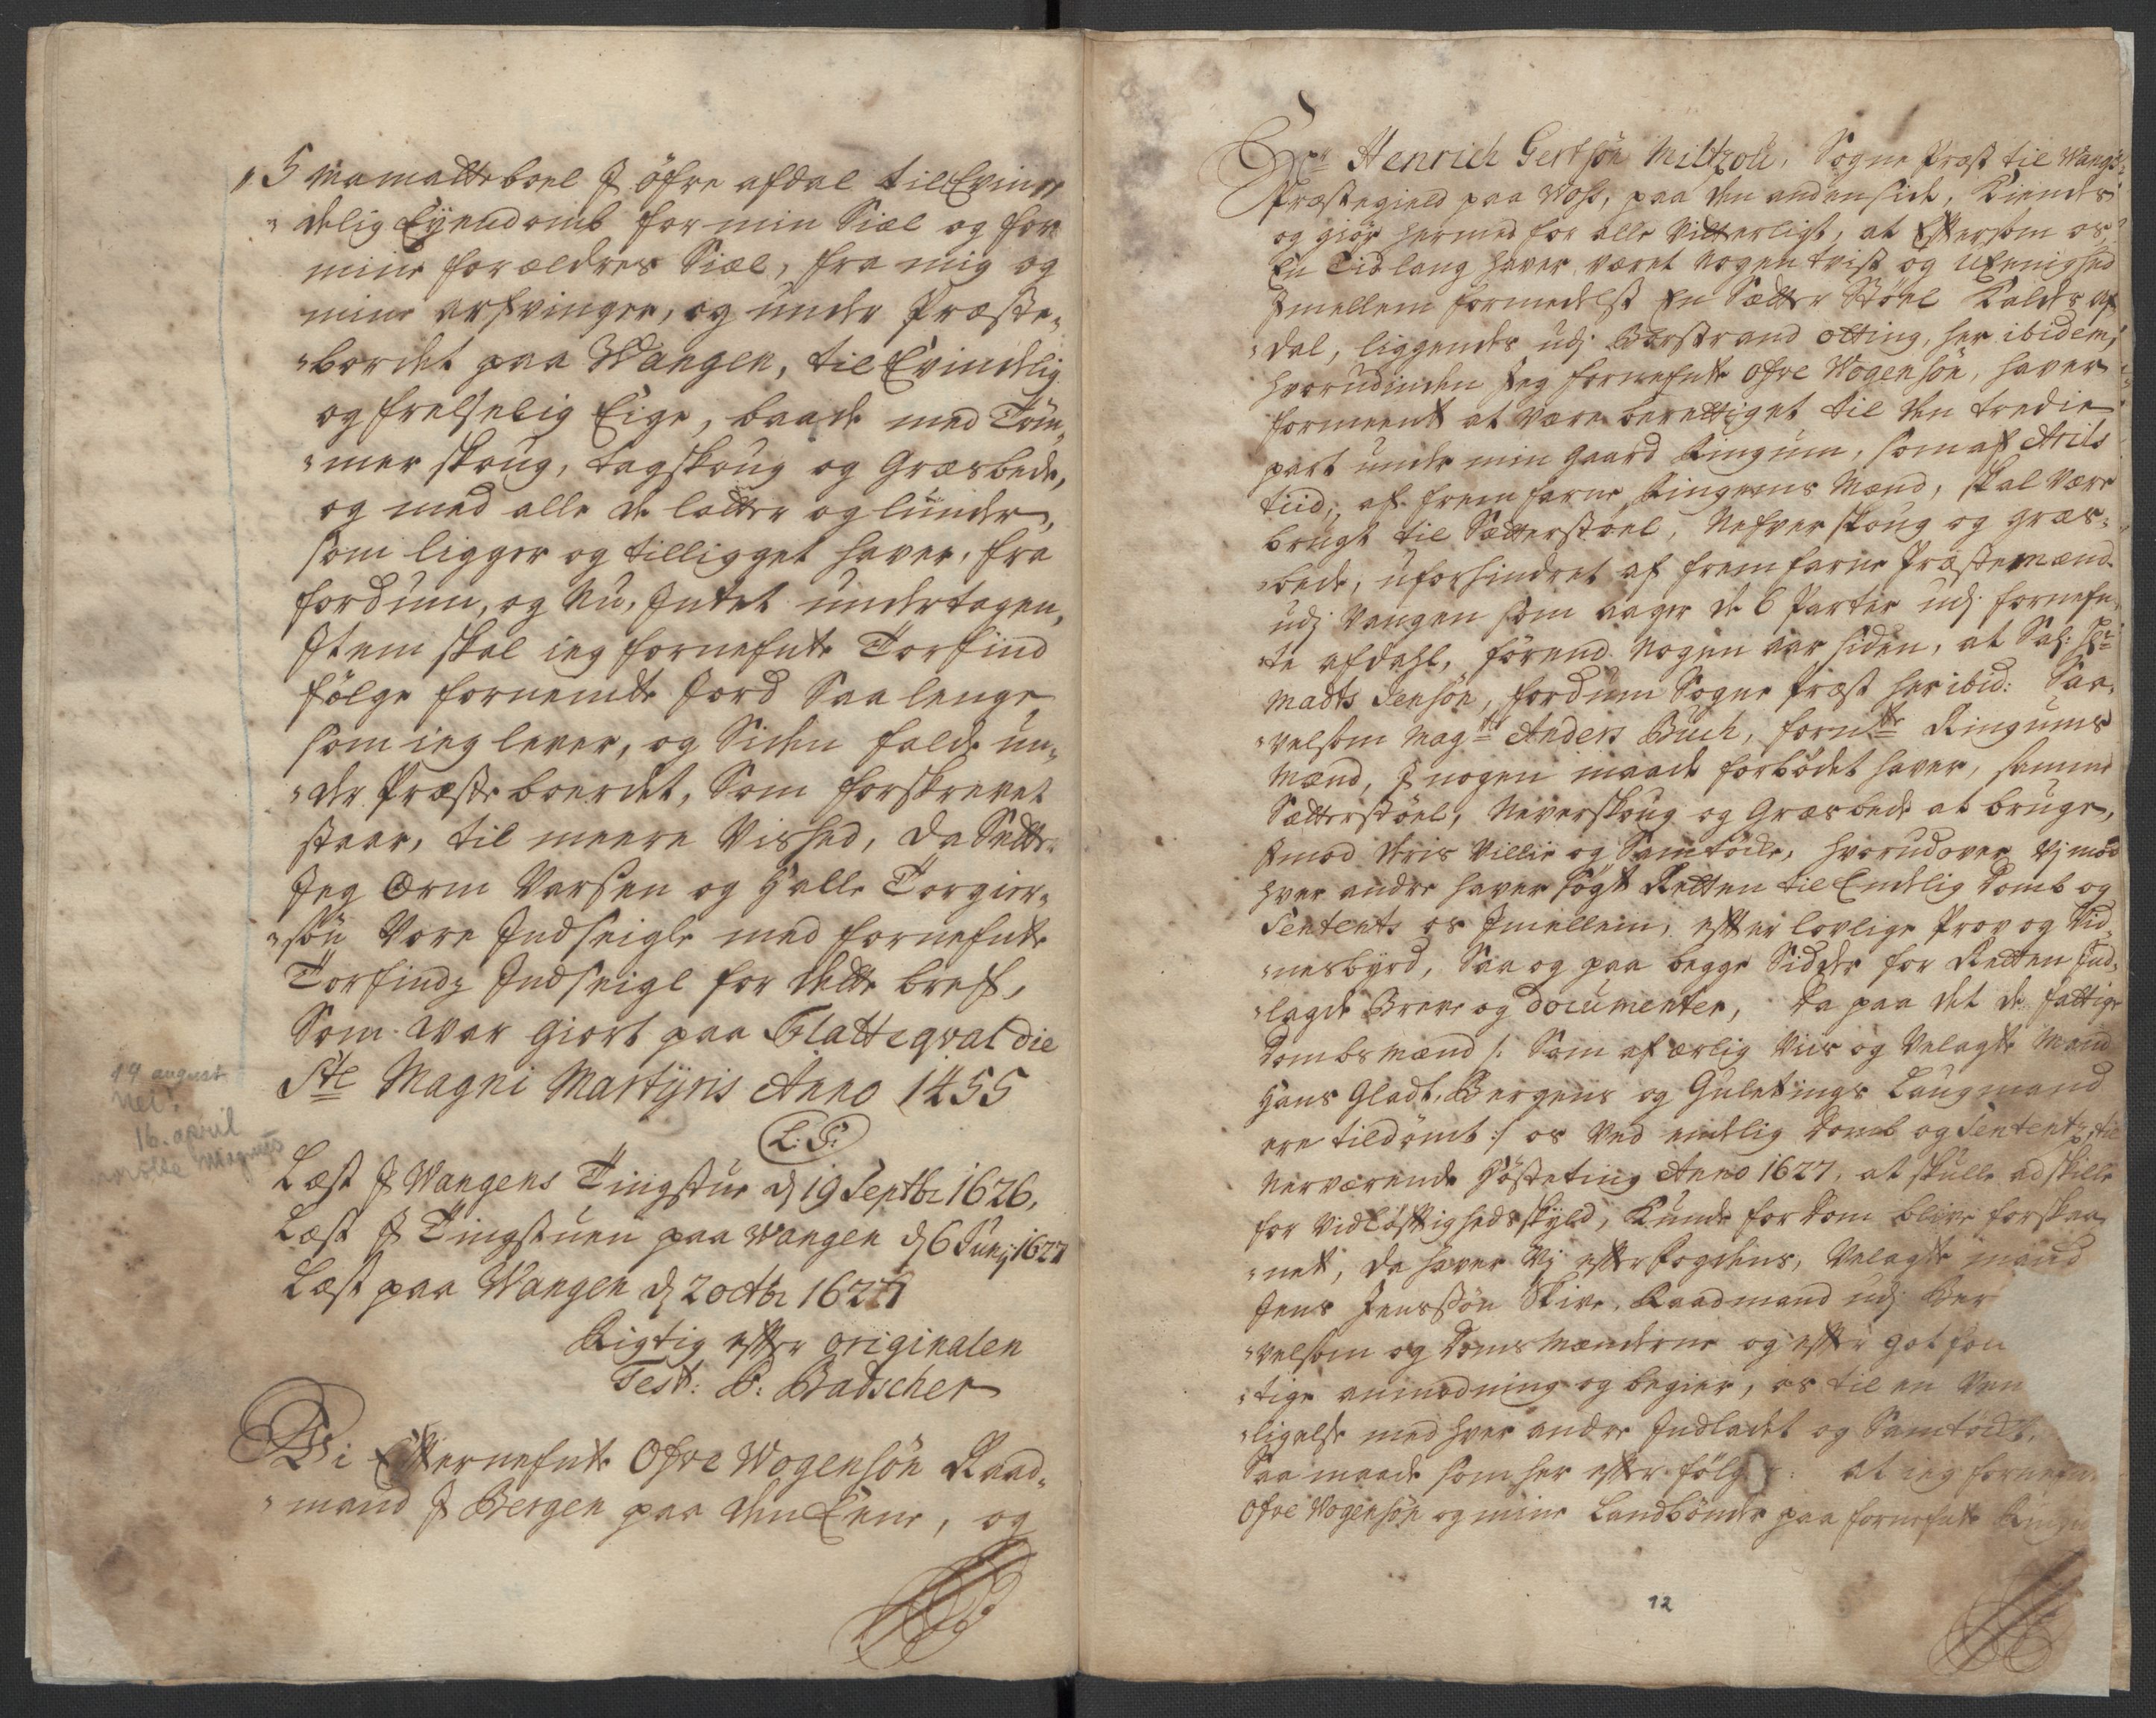 5 mamatteboel J öfre afdal til Evin,,
delig Eÿendomb for min Siæl og for
mine forældres Siæl, fra mig og
mine arfvinger, og under Præste-
bordet paa Wangen, til Evindelig
og frelselig Eige, baade med Töm-
mer skoug, tagskoug og Græsbede,
og med alle de latter og lunder,
som ligger og tilligget haver, fra
fordum, og Nu, Intet undertagen,
Item skal ieg fornefnte Torfind
følge fornemdte Jord Saa lenge
som ieg lever, og Siden falde un-
der Præste boerdet, Som forskrevet
staar, til meere Vished, da Sætter
Jeg Orm Varsen og Halle Torgier-
sön Vore Indseigle med fornefnte
Torfindz Indseigl for dette bref,
Som war giort paa Flatteqval die
Ste Magni Martÿris Anno 1455
(L:S:)
14 august
Nei!
16. april
måtte Magnus
Læst J Wangens Tingstue d 19 Septbr 1626,
Læst J Tingstuen paa Wangen d 6 Junj 1627
Læst paa Wangen d 2 octbr 1627
Rigtig efter originalen
Test: B: Badscher
Wi Efternefnte Ofve Wogensön Raad-
mand J Bergen paa den Eene, og
Hr Henrich Gertsön Miltzou, Sogne Præst til Wangs
Præstegield paa Wos, paa den anden side, Kiendes
og giør hermed for alle Vitterligt, at Eftersom os
En Tid lang haver været nogen tvist og Ueenighed
Imellem formedelst En Sætter Støel Kaldes af
dal, liggendes udj Borstrand otting, her ibidem,
hvorudinden Jeg fornefnte Ofve Wogensön, haver
formeent at være berettiget til den tredie
part under min gaard Ringum, som af Arils
tiid, af fremfarne Ringums Mænd, skal være
brugt til Sætterstøel, Nefver skoug og græs-
bede, uforhindret af fremfarne Præstemænd
udj Vangen som eager de 6 Parter udj fornefn
te afdahl, förend nogen aar siden, at Sal: Hr
Madts Jensön, fordum Sogne Præst her ibid: Saa-
velsom Magtr Anders Buch, fornte Ringums
Mænd, J nogen maade forbödet haver, samme
Sætterstøel, Neverskoug og Græsbede at bruge,
Imod deris Villie og Samtöcke, hvorudover Vj mod
hver andre haver søgt Retten til Endelig Domb og
Sentents os Imellem, efter lovlige Prov og Vid-
nesbÿrd, Saa og paa begge Sidder for Retten Ind-
lagde Breve og documenter, Da paa det de fattige
Dombsmænd /: Som af ærlig Viis og Velagte Mand
Hans Gladt, Bergens og Guletings Laugmand
ere tildømt :/ os Ved endelig Domb og Sententz, til
Nerværende Höstting Anno 1627, at skulle ad skille
for Vidløftigheds skÿld, Kunde for Dom blive forskaa-
net, da haver Vj efter fogdens, Velagte mand
Jens Jenssön Skive, Raadmand udj Ber
velsom og Domsmændene og efter got fou
tige anmodning og begier, os til en Ven
ligelse med hver andre Indladet og Samtöckt,
Saa maade som her efter følger: at ieg fornefn
Ofve Wogensön og mine Landbönder paa fornefnte Ringu
12